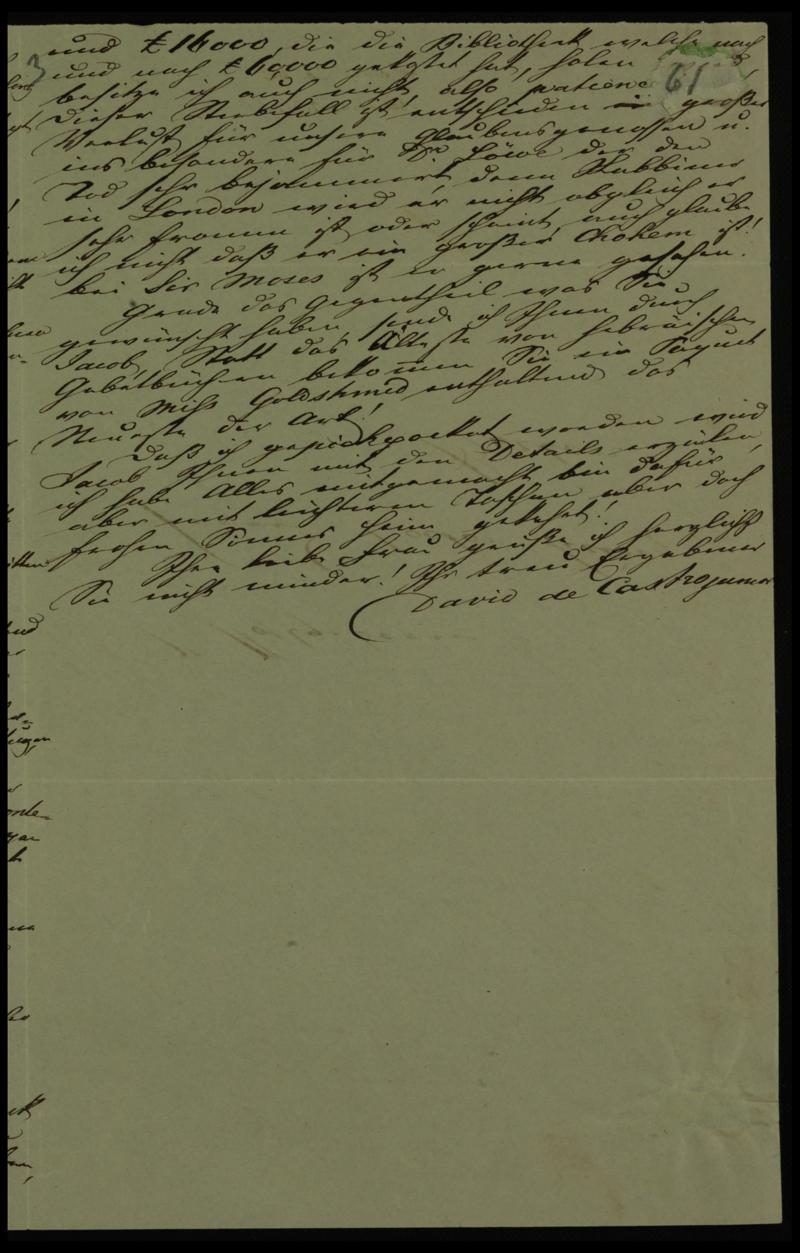 und £ 16000, die die Bibliothek welche nach
3 und nach £ 60,000 gekostet hat, holen
61
besitze ich auch nicht, also patience
Dieser Sterbefall ist entschieden ein großer
Verlust für unsere Glaubensgenossen u.
ins besondere für Dr Löwe der den
Tod sehr bejammert, denn Rabbiner
in London wird er nicht obgleich er
sehr fromm ist oder scheint, auch glaube
ich nicht daß er ein großer Chohem ist!
bei Sir Moses ist er gerne gesehen.
Grade das Gegentheil was Sie
gewünscht haben sende ich Ihnen durch
Jacob, Statt das Älteste von hebräischen
Gebetbüchern bekommen Sie ein Paquet
von Miss Goldshmed enthaltend das
Neueste der Art!
Daß ich gepickpocket worden wird
Jacob Ihnen mit den Details erzählen,
ich habe Alles mitgemacht bin dafür,
aber mit leichteren Taschen aber doch
frohen Sinnes heim gekehrt!
Ihre liebe Frau grüße ich herzlichst
Sie nicht minder! Ihr treu Ergebener
David de Castro junior